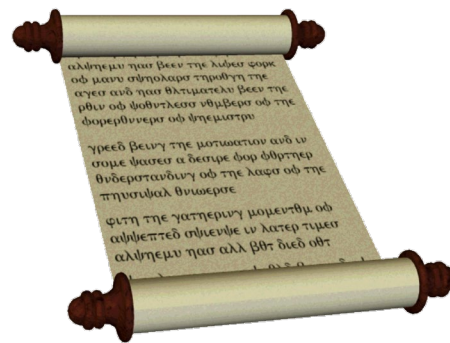 αλψηεμυ ηασ βεεν τηε λιφεσ φορκ
οφ μανυ σψηολαρσ τηροθγη τηε
αγεσ ανδ ηασ θλτιματελυ βεεν τηε
ρθιν οφ ψοθντλεσσ νθμβερσ οφ τηε
φορερθννερσ οφ ψηεμιστρυ
γρεεδ βεινγ τηε μοτιωατιον ανδ ιν
σομε ψασεσ α δεσιρε φορ φθρτηερ
θνδερστανδινγ οφ τηε λαφσ οφ τηε
πηυσιψαλ θνιωερσε
φιτη τηε γατηερινγ μομεντθμ οφ
αψψεπτεδ σψιενψε ιν λατερ τιμεσ
αλψηεμυ ηασ αλλ βθτ διεδ οθτ